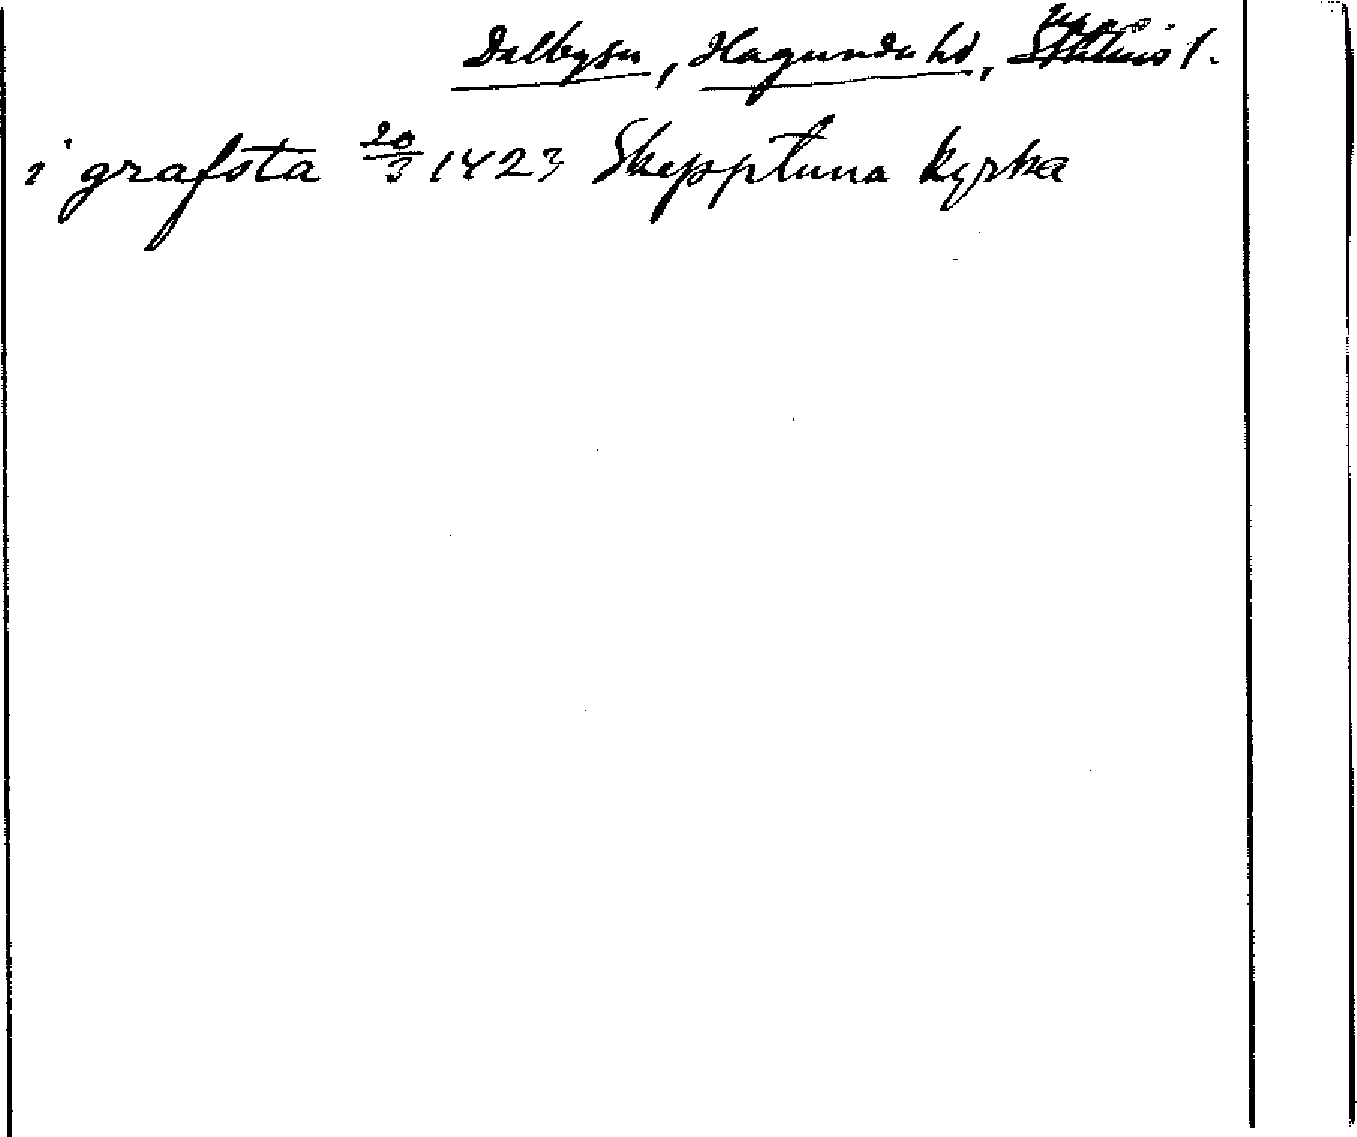 Dalby sn, Hagunda hd, Upps. l.
i grafsta 20/3 1423 Skepptuna kyrka